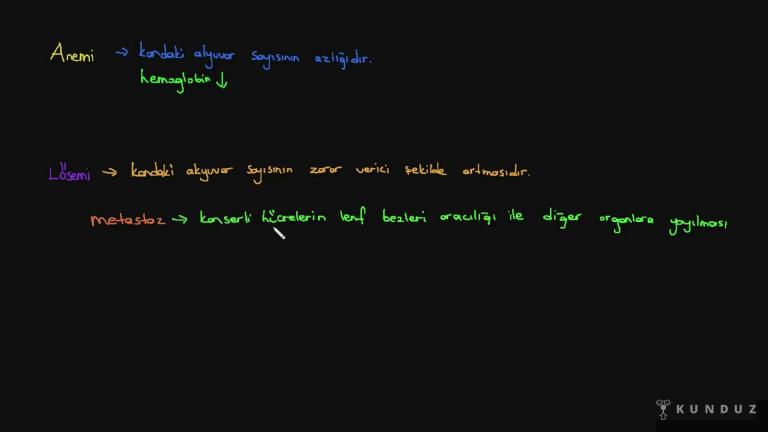 Anemi → kandaki alyuvar sayısının azlığıdır.
hemoglobin ↓
Lösemi → kandaki akyuvar sayısının zarar verici şekilde artmasıdır.
metastaz → kanserli hücrelerin lenf bezleri aracılığı ile diğer organlara yayılması
KUNDUZ